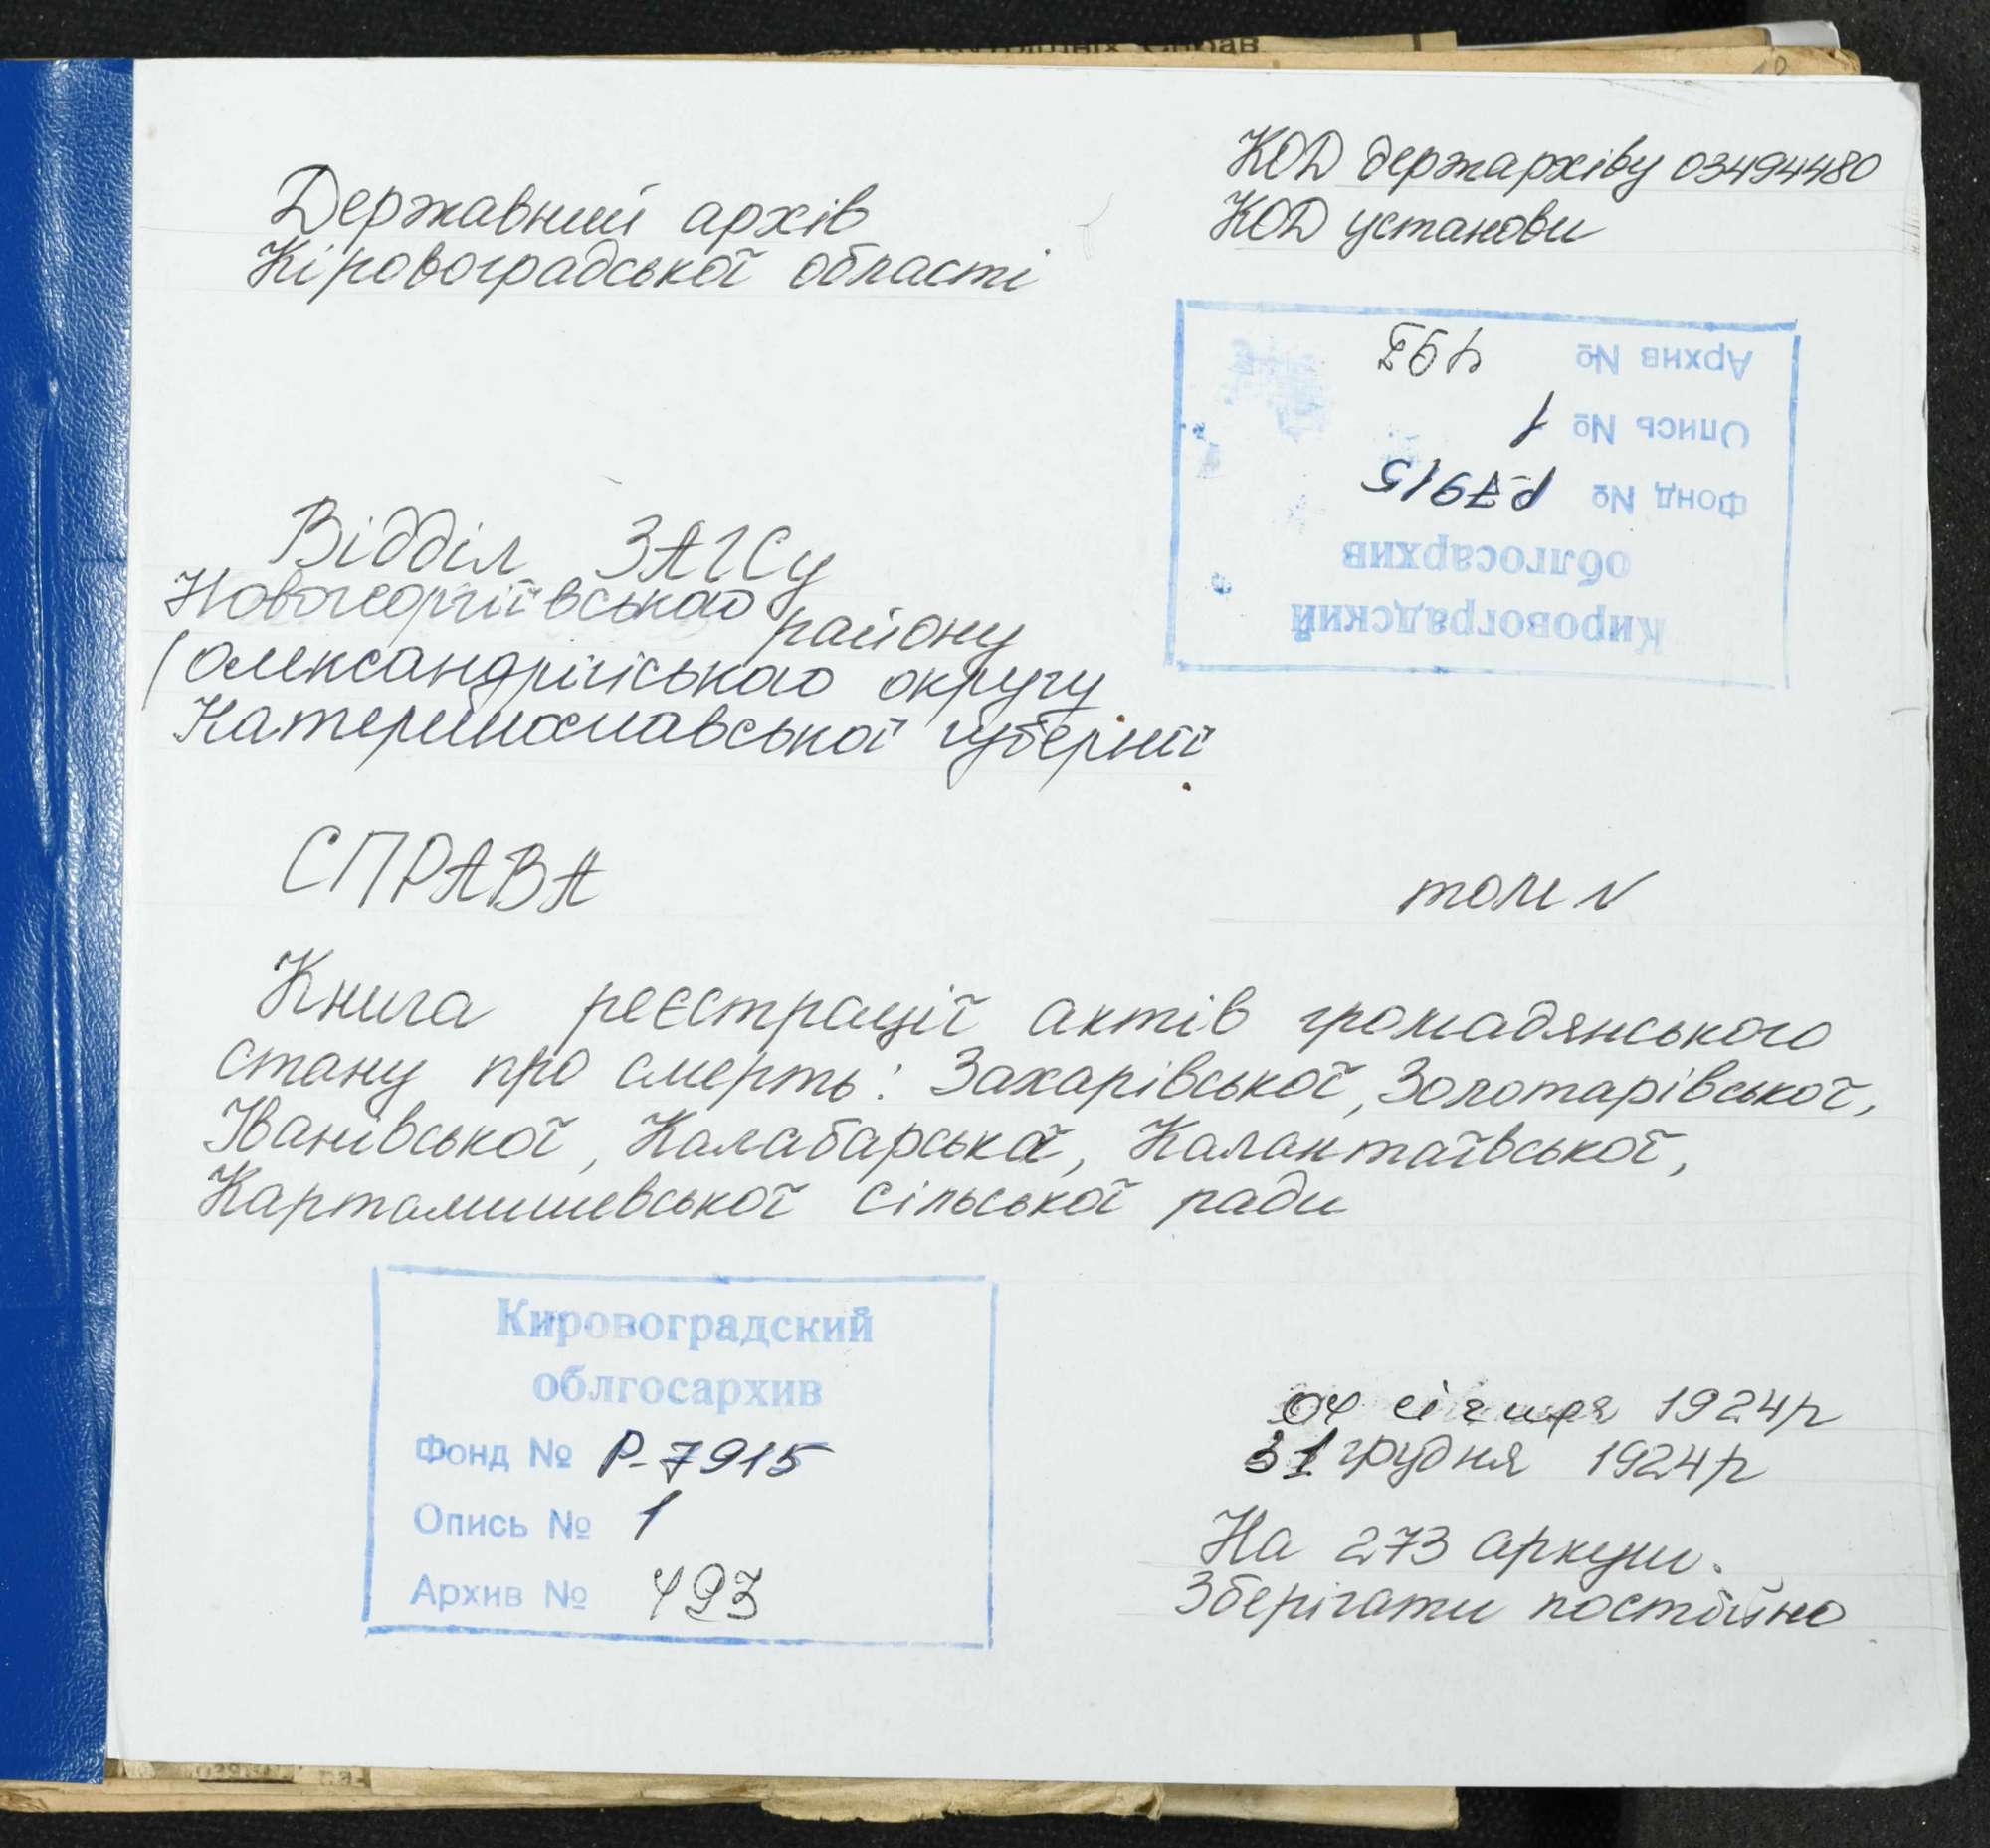 Внутрішніх Справ
Державний архів
Кіровоградської області
КОД держархіву 03494480
КОД установи
Кировоградский
облгосархив
Фонд № Р-7915
Опись № 1
Архив № 493
Відділ ЗАГСу
Новогеоргіївського району
(Олександрійського округу
Катеринославської губернії
СПРАВА
том №
Книга реєстрації актів громадянського
стану про смерть: Захарівської, Золотарівської,
Іванівської, Калабарської, Калантаївської,
Картамишевської сільської ради
Кировоградский
облгосархив
Фонд № Р-7915
Опись № 1
Архив № 493
04 січня 1924р
31 грудня 1924р
На 273 аркуш.
Зберігати постійно